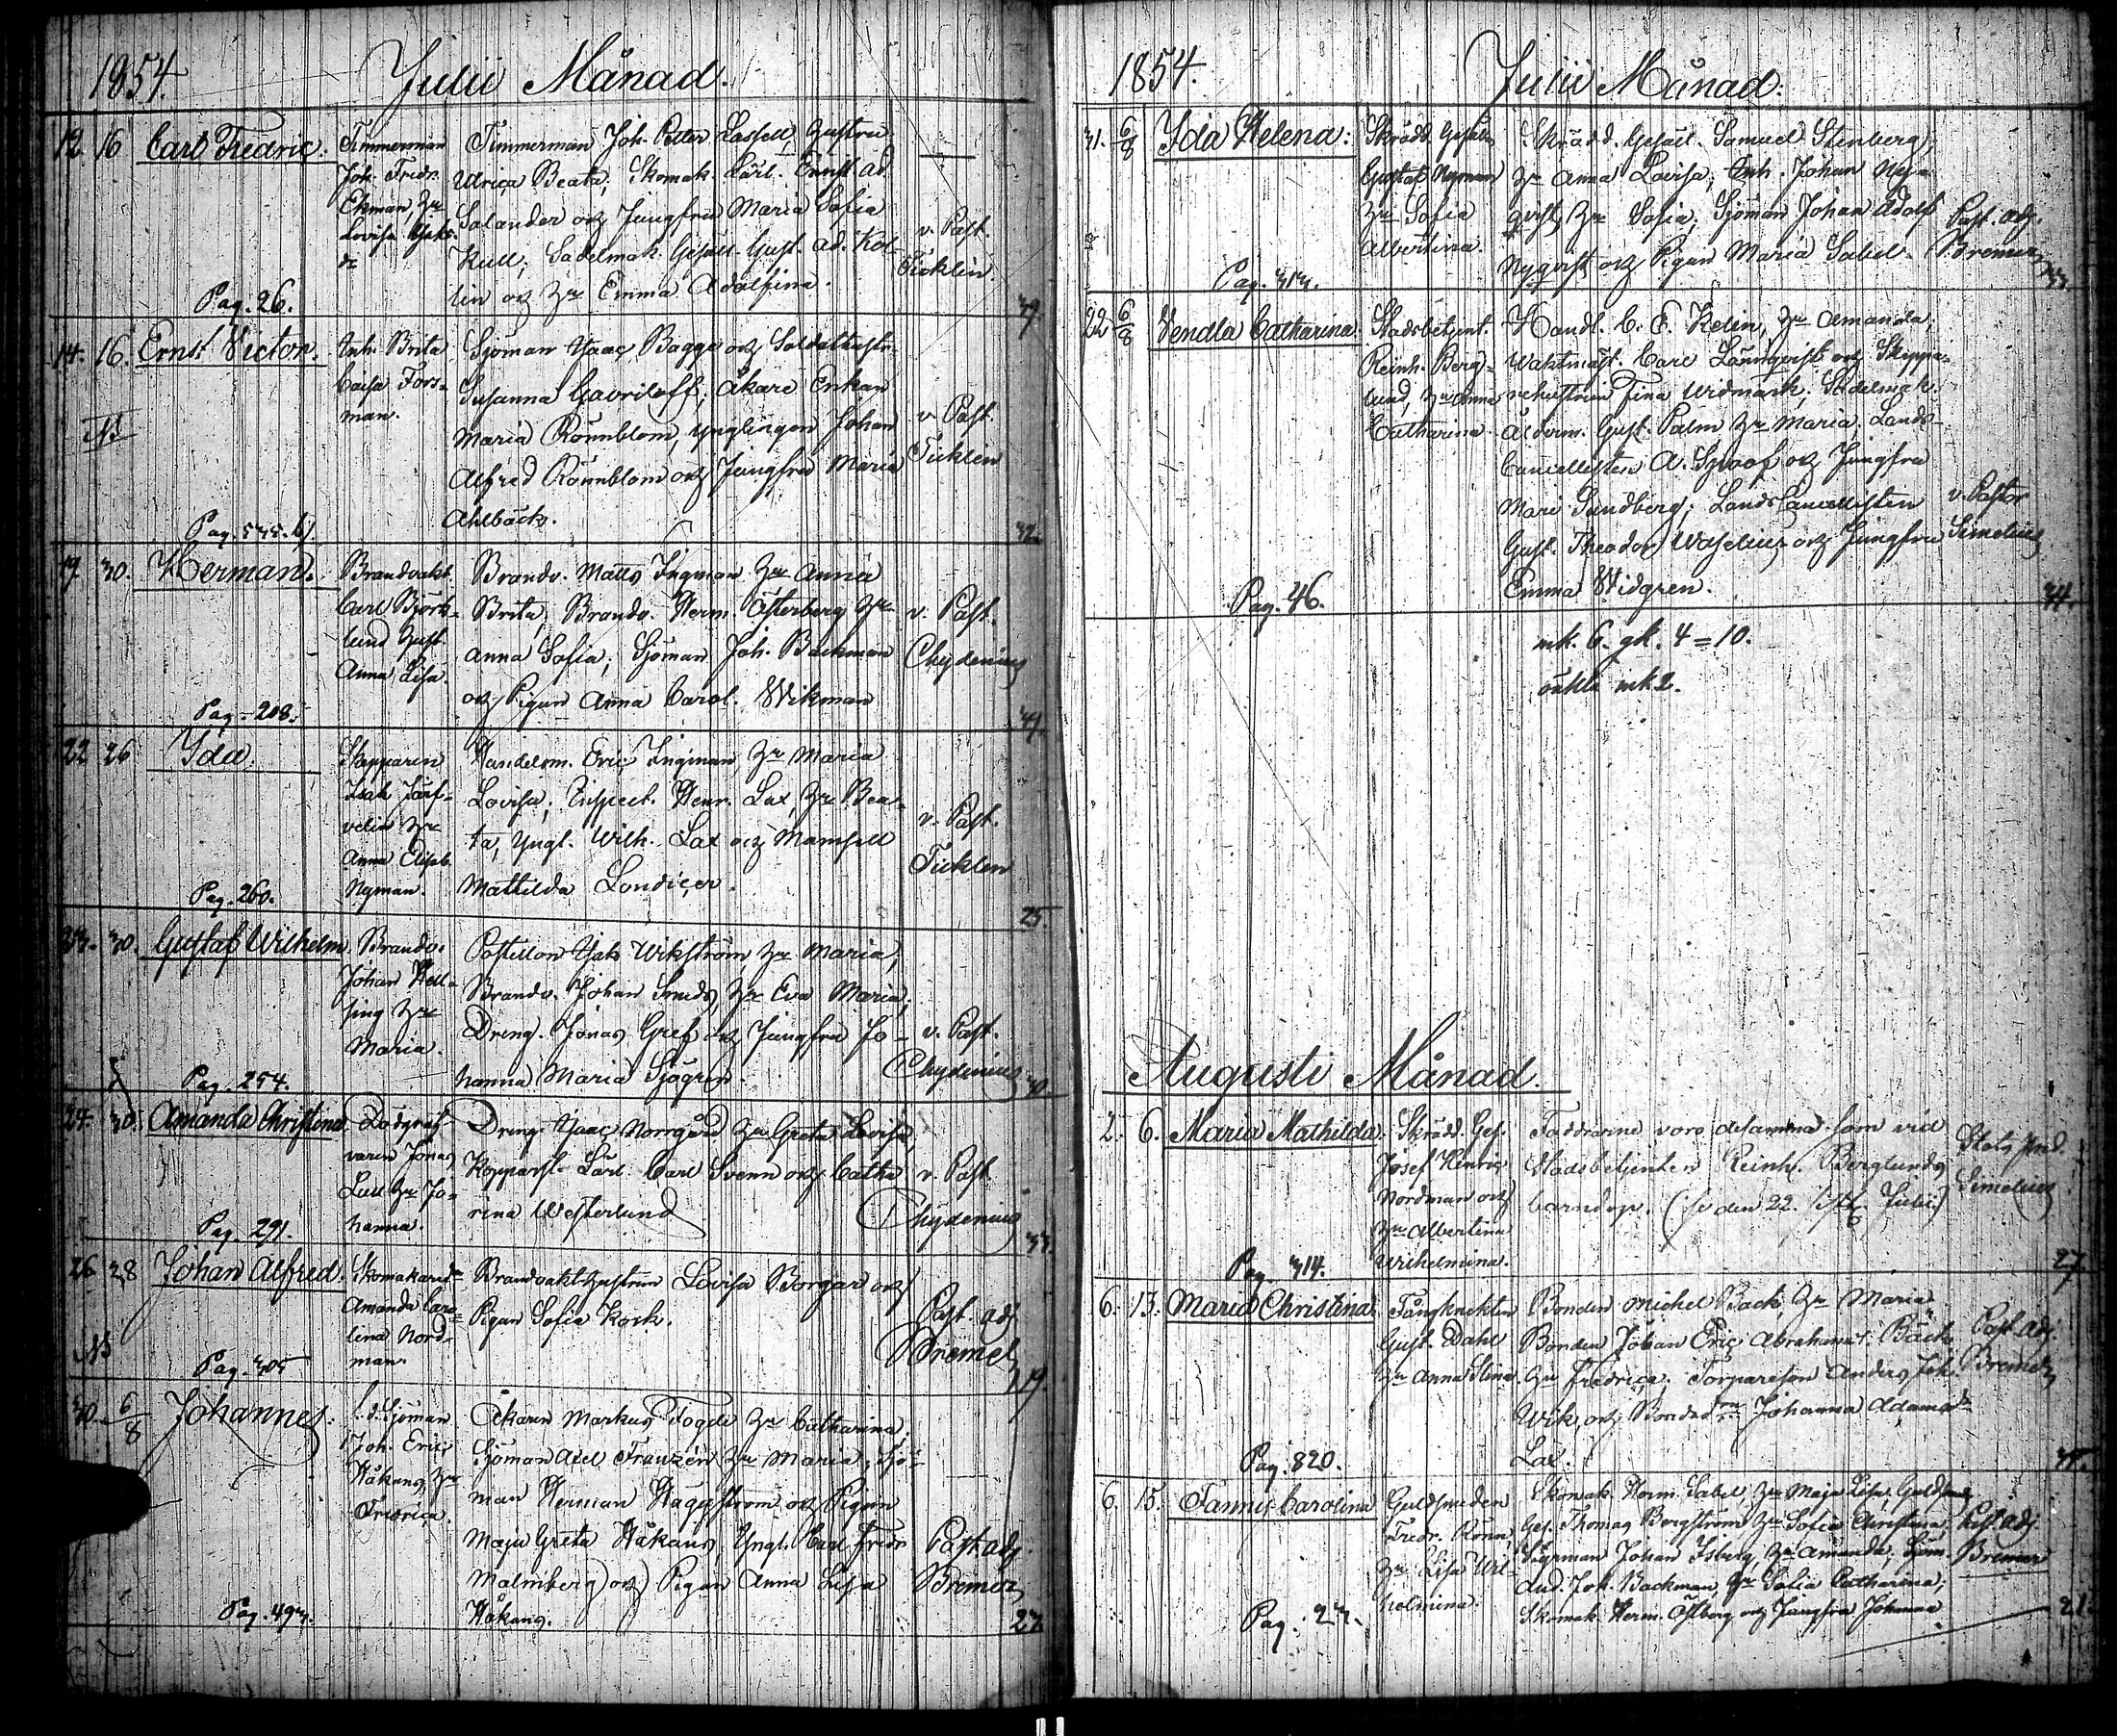 1854. Julii Månad.
12. 16 Carl Fredric.
Timmerman
Joh. Fredr.
Ekman, Hu
Lovisa
Timmerman Joh. Petter hustru
Ulrica Beata; Skomak. Lärl. Ernst Ad.
Salander och Jungfru Maria Sofia
Kull; Sadelmak. Gesäll. Gust. Ad. Kol-
lin och Hu Emma Adolfina.
v. Past.
Ticklén.
Pag. 26.
39.
14. 16. Ernst Victor.
Inh. Brita
Caisa Fors-
man.
Sjöman Isaac Bagge och Soldathustr.
Susanna Gavriloff; Åkare Enkan
Maria Rönnblom, Ynglingen Johan
Alfred Rönnblom och Jungfru Maria
Ahlbäck.
v. Past.
Ticklén
Pag. 545.
32.
19. 30. Herman.
Brandvakt.
Carl Björk-
lund hust.
Anna Lisa.
Brandv. Matts Ingman Hu Anna
Brita; Brandv. Herm. Österberg Hu
Anna Sofia; Sjöman Joh. Backman
och Pigan Anna Carol. Wikman
v. Past.
Chydenius
Pag. 208.
22 26 Ida.
Skepparen
Isak Järf-
velin Hu
Anna Elisab.
Nyman.
Handelsm. Eric Ingman, Hu Maria
Lovisa; Inspect. Henr. Lax, Hu Bea-
ta, Yngl. Wilh. Lax och Mamsell
Mathilda Londicer.
v. Past.
Ticklén
Pag. 260.
25
23. 30. Gustaf Wilhelm
Brandv.
Johan Hell-
sing Hu
Maria.
Postillon Isak Wikström, Hu Maria;
Brandv. Johan Smeds, Hu Eva Maria;
Dreng. Jonas Gref och Jungfru Jo-
hanna Maria Sjögren.
v. Past.
Chydenius
Pag. 254.
30.
24. 30. Amanda Christina.
varen Jonas
Hu Jo-
hanna.
Dreng. Isaac Norrgård Hu Greta Lovisa,
Kopparsl. Lärl. Carl Svenn och Catha
rina Westerlund
v. Past.
Chydenius
Pag. 291.
33.
26 28 Johan Alfred.
Amanda Caro
lina Nord-
man.
Brandvakt hustrun Lovisa Borgar och
Pigan Sofia Kock.
Past. Adj.
Bremer
Pag. 305
19.
30. 6/8 Johannes.
Sjöman
Joh. Eric
Håkans, Hu
Fredrica.
Åkaren Markus Fogde Hu Catharina;
Sjöman Axel Franzén Hu Maria; Sjö-
man Herman Häggström och Pigan
Maja Greta Håkans, Yngl. Carl Fredr.
Malmberg och Pigan Anna Lisa
Håkans.
Past. Adj.
Bremer
Pag. 493.
27.
1854. Julii Månad.
31. 6/8 Ida Helena.
Skrädd. Gesäll
Gustaf Nyman
Hu Sofia
Albertina.
Skrädd. Gesäll. Samuel Stenberg;
Hu Anna Lovisa; Inh. Johan Ny-
qvist, Hu Sofia; Sjöman Johan Adolf
Nyqvist och Pigan Maria Sabel.
Past. Adj.
Bremer
Pag. 313.
33.
22 6/8 Vendla Catharina.
Stadsbetjent.
Reinh. Berg-
lund, Hu Anna
Catharina
Handl. C. E. Kelin, Hu Amanda;
Waktmäst. Carl Lönnqvist och Skeppa-
rehustrun Fina Widmark; Sadelmak.
Ålderm. Gust. Palm Hu Maria. Lands-
Cancellisten A. och Jungfru
Mari Sundberg; LandsCancellisten
Gust. Theodor Waselius och Jungfru
Emma Widgren.
v. Pastor
Simelius
Pag. 46.
34.
mk. 6. qk. 4 = 10.
oäkta mk 2.
Augusti Månad.
2. 6. Maria Mathilda.
Skrädd. Ges.
Josef Henric
Nordman och
Hu Albertina
Wilhelmina.
Faddrarne voro desamma som vid
Stadsbetjenten Reinh. Berglunds
barndop. (se den 22. Julii)
Simelius
Pag. 314.
27.
6. 13. Maria Christina
Fångknekten
Gust. Dahl
Hu Anna Stina.
Bonden Michel Back Hu Maria
Bonden Johan Eric Abrahams. Bäck
Hu Fredrica; Torpareson Anders Joh.
Wik, och Bonded. Johanna Adamsdr
Lax.
Past. Adj.
Bremer
Pag. 820.
6. 15. Fanny Carolina
Guldsmeden
Fredr. Rönn,
Hu Lisa Wil-
helmina.
Skomak. Herm. Sabel, Hu Maja Lisa; Guldsm.
Ges. Thomas Bergström Hu Sofia Christina;
Styrman Johan Isberg, Hu Amanda; Sjöm.
Joh. Backman, Hu Sofia Catharina;
Skomak. Herm. Östberg och Jungfru Johanna
Past. Adj.
Bremer
Pag. 23.
21.